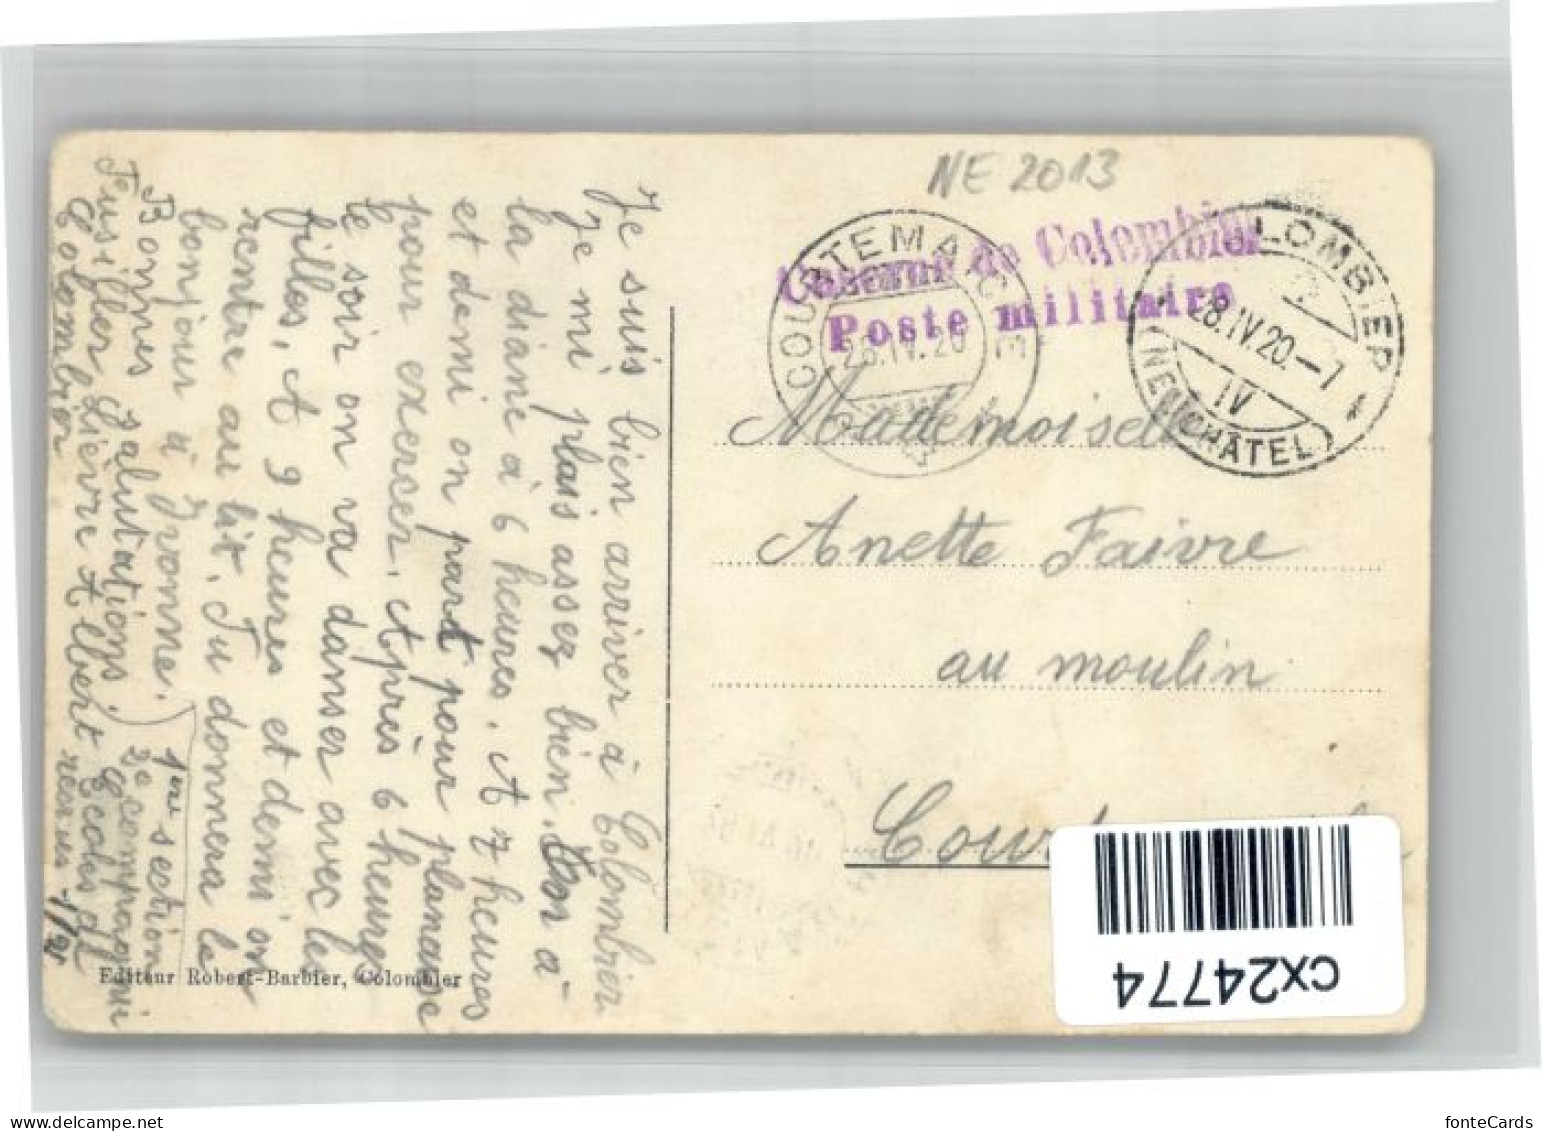 NE 2013
Caserne de Colombier
Poste militaire
COURTEMAICHE
28.IV.20
COLOMBIER
28.IV.20.-7
IV
(NEUCHÂTEL)
Mademoiselle
Anette Faivre
au moulin
Je suis bien arriver à Colombier
Je mi plais assez bien. on a
la diane à 6 heures. A 7 heures
et demi on part pour planaise
pour exercer. Après 6 heures
le soir on va danser avec les
filles, et 9 heures et demi on
rentre au lit. Tu donnera le
bonjour à Ivonne.
Bonnes salutations.
Fusilier Lièvre Albert
Colombier
1ère section
2e compagnie
Ecoles de
recrues 1/2
Editeur Robert-Barbier, Colombier
CX24774
delcampe.net
fonteCards